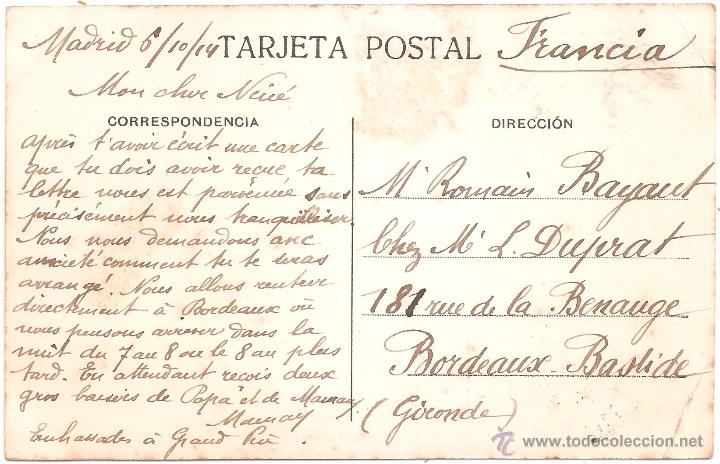 Madrid 6/10/14 TARJETA POSTAL Francia
Mon cher Néné
CORRESPONDENCIA
après t'avoir écrit une carte
que tu dois avoir reçue ta
lettre nous est parvenue sans
précisément nous tranquilliser
Nous nous demandons avec
anxiété comment tu te seras
arrangé. Nous allons rentrer
directement à Bordeaux où
nous pensons arriver dans la
nuit du 7 au 8 ou le 8 au plus
tard. En attendant reçois deux
gros baisers de Papa et de Maman
Maman
Embrassades à Grand
DIRECCIÓN
Mr Romain Bayaut
Chez Mr L. Duprat
181 rue de la Benauge
Bordeaux-Bastide
(Gironde)
www.todocoleccion.net